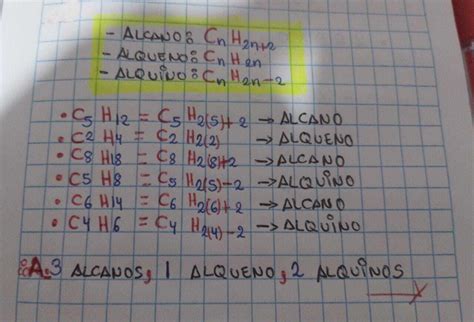 - ALCANO: CnH2n+2
- ALQUENO: CnH2n
- ALQUINO: CnH2n-2
• C5 H12 = C5 H2(5)+2 → ALCANO
• C2 H4 = C2 H2(2) → ALQUENO
• C8 H18 = C8 H2(8)+2 → ALCANO
• C5 H8 = C5 H2(5)-2 → ALQUINO
• C6 H14 = C6 H2(6)+2 → ALCANO
• C4 H6 = C4 H2(4)-2 → ALQUINO
A: 3 ALCANOS, 1 ALQUENO, 2 ALQUINOS